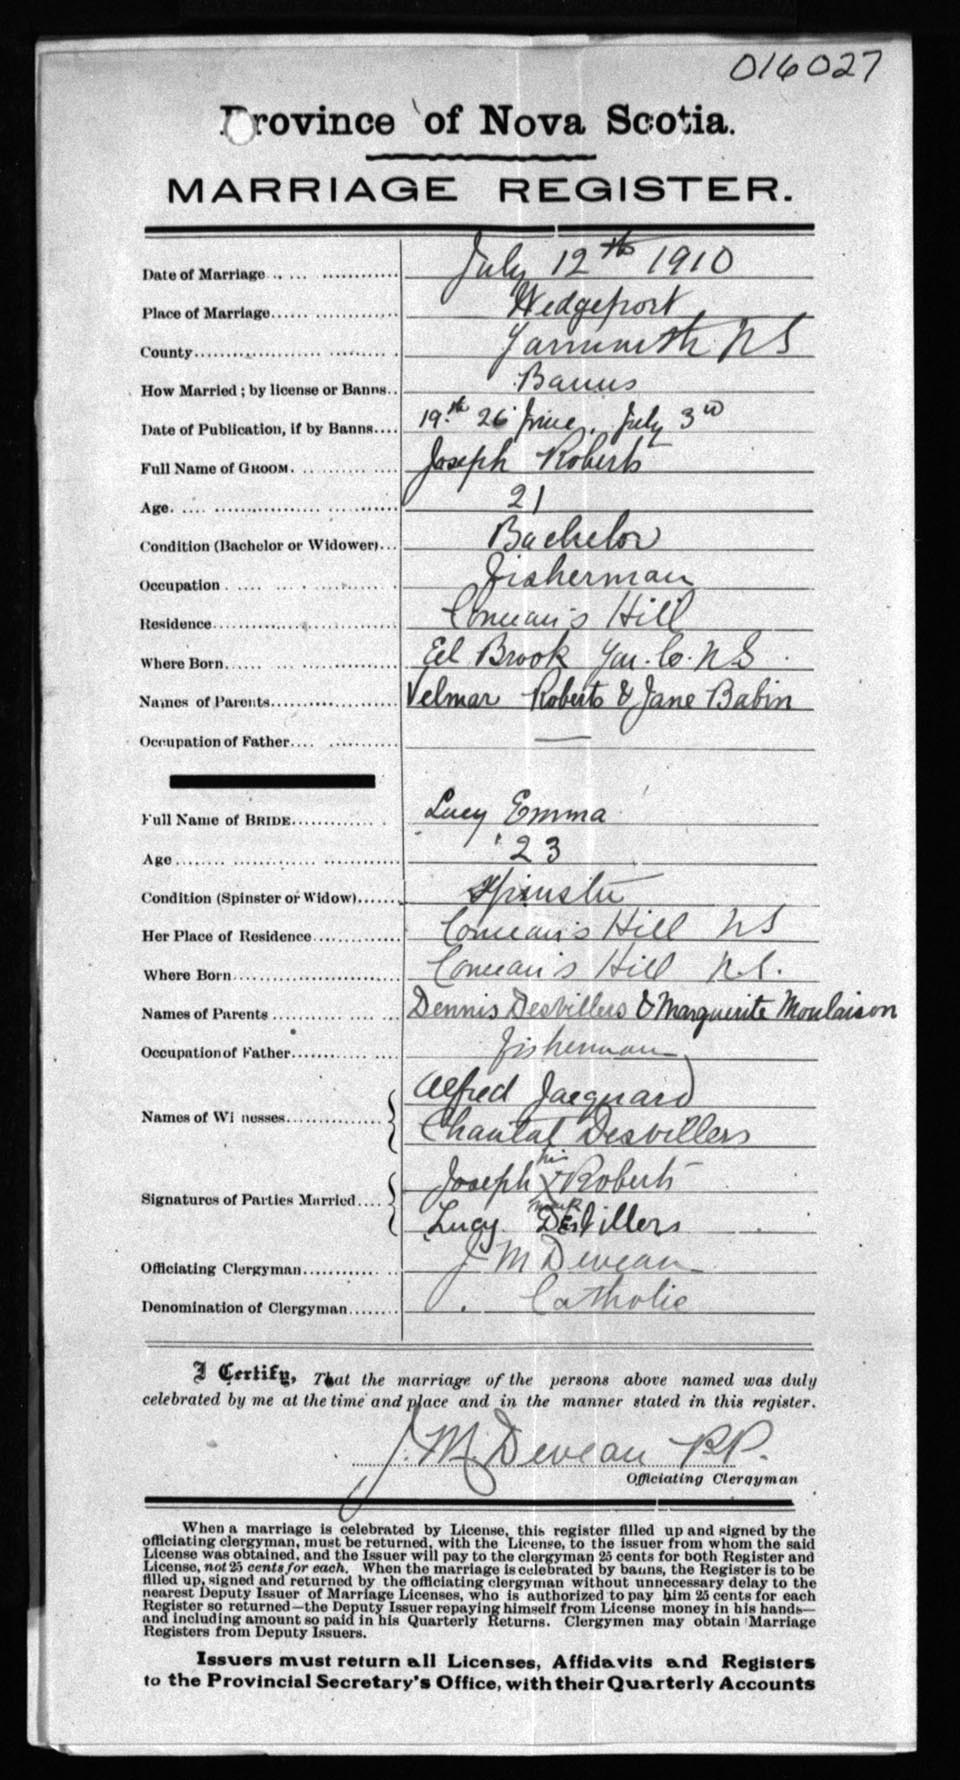 016027
Province of Nova Scotia.
MARRIAGE REGISTER.
Date of Marriage July 12th 1910
Place of Marriage Wedgeport
County Yarmouth NS
How Married; by license or Banns Banns
Date of Publication, if by Banns 19th 26 June, July 3rd
Full Name of GROOM Joseph Roberts
Age 21
Condition (Bachelor or Widower) Bachelor
Occupation Fisherman
Residence Comeau's Hill
Where Born Eel Brook Yar. Co. NS
Names of Parents Velmar Roberts & Jane Babin
Occupation of Father —
Full Name of BRIDE Lucy Emma
Age 23
Condition (Spinster or Widow) Spinster
Her Place of Residence Comeau's Hill NS
Where Born Comeau's Hill N.S.
Names of Parents Dennis Desvillers & Marguerite Moulaison
Occupation of Father Fisherman
Names of Wi nesses Alfred Jacquard
Chantal Desvillers
his
Signatures of Parties Married Joseph X Roberts
mark
Lucy Desvillers
Officiating Clergyman J M Deveau
Denomination of Clergyman Catholic
I Certify, That the marriage of the persons above named was duly
celebrated by me at the time and place and in the manner stated in this register.
J. M. Deveau P.P.
Officiating Clergyman
When a marriage is celebrated by License, this register filled up and signed by the
officiating clergyman, must be returned, with the License, to the issuer from whom the said
License was obtained, and the Issuer will pay to the clergyman 25 cents for both Register and
License, not 25 cents for each. When the marriage is celebrated by banns, the Register is to be
filled up, signed and returned by the officiating clergyman without unnecessary delay to the
nearest Deputy Issuer of Marriage Licenses, who is authorized to pay him 25 cents for each
Register so returned—the Deputy Issuer repaying himself from License money in his hands—
and including amount so paid in his Quarterly Returns. Clergymen may obtain Marriage
Registers from Deputy Issuers.
Issuers must return all Licenses, Affidavits and Registers
to the Provincial Secretary's Office, with their Quarterly Accounts